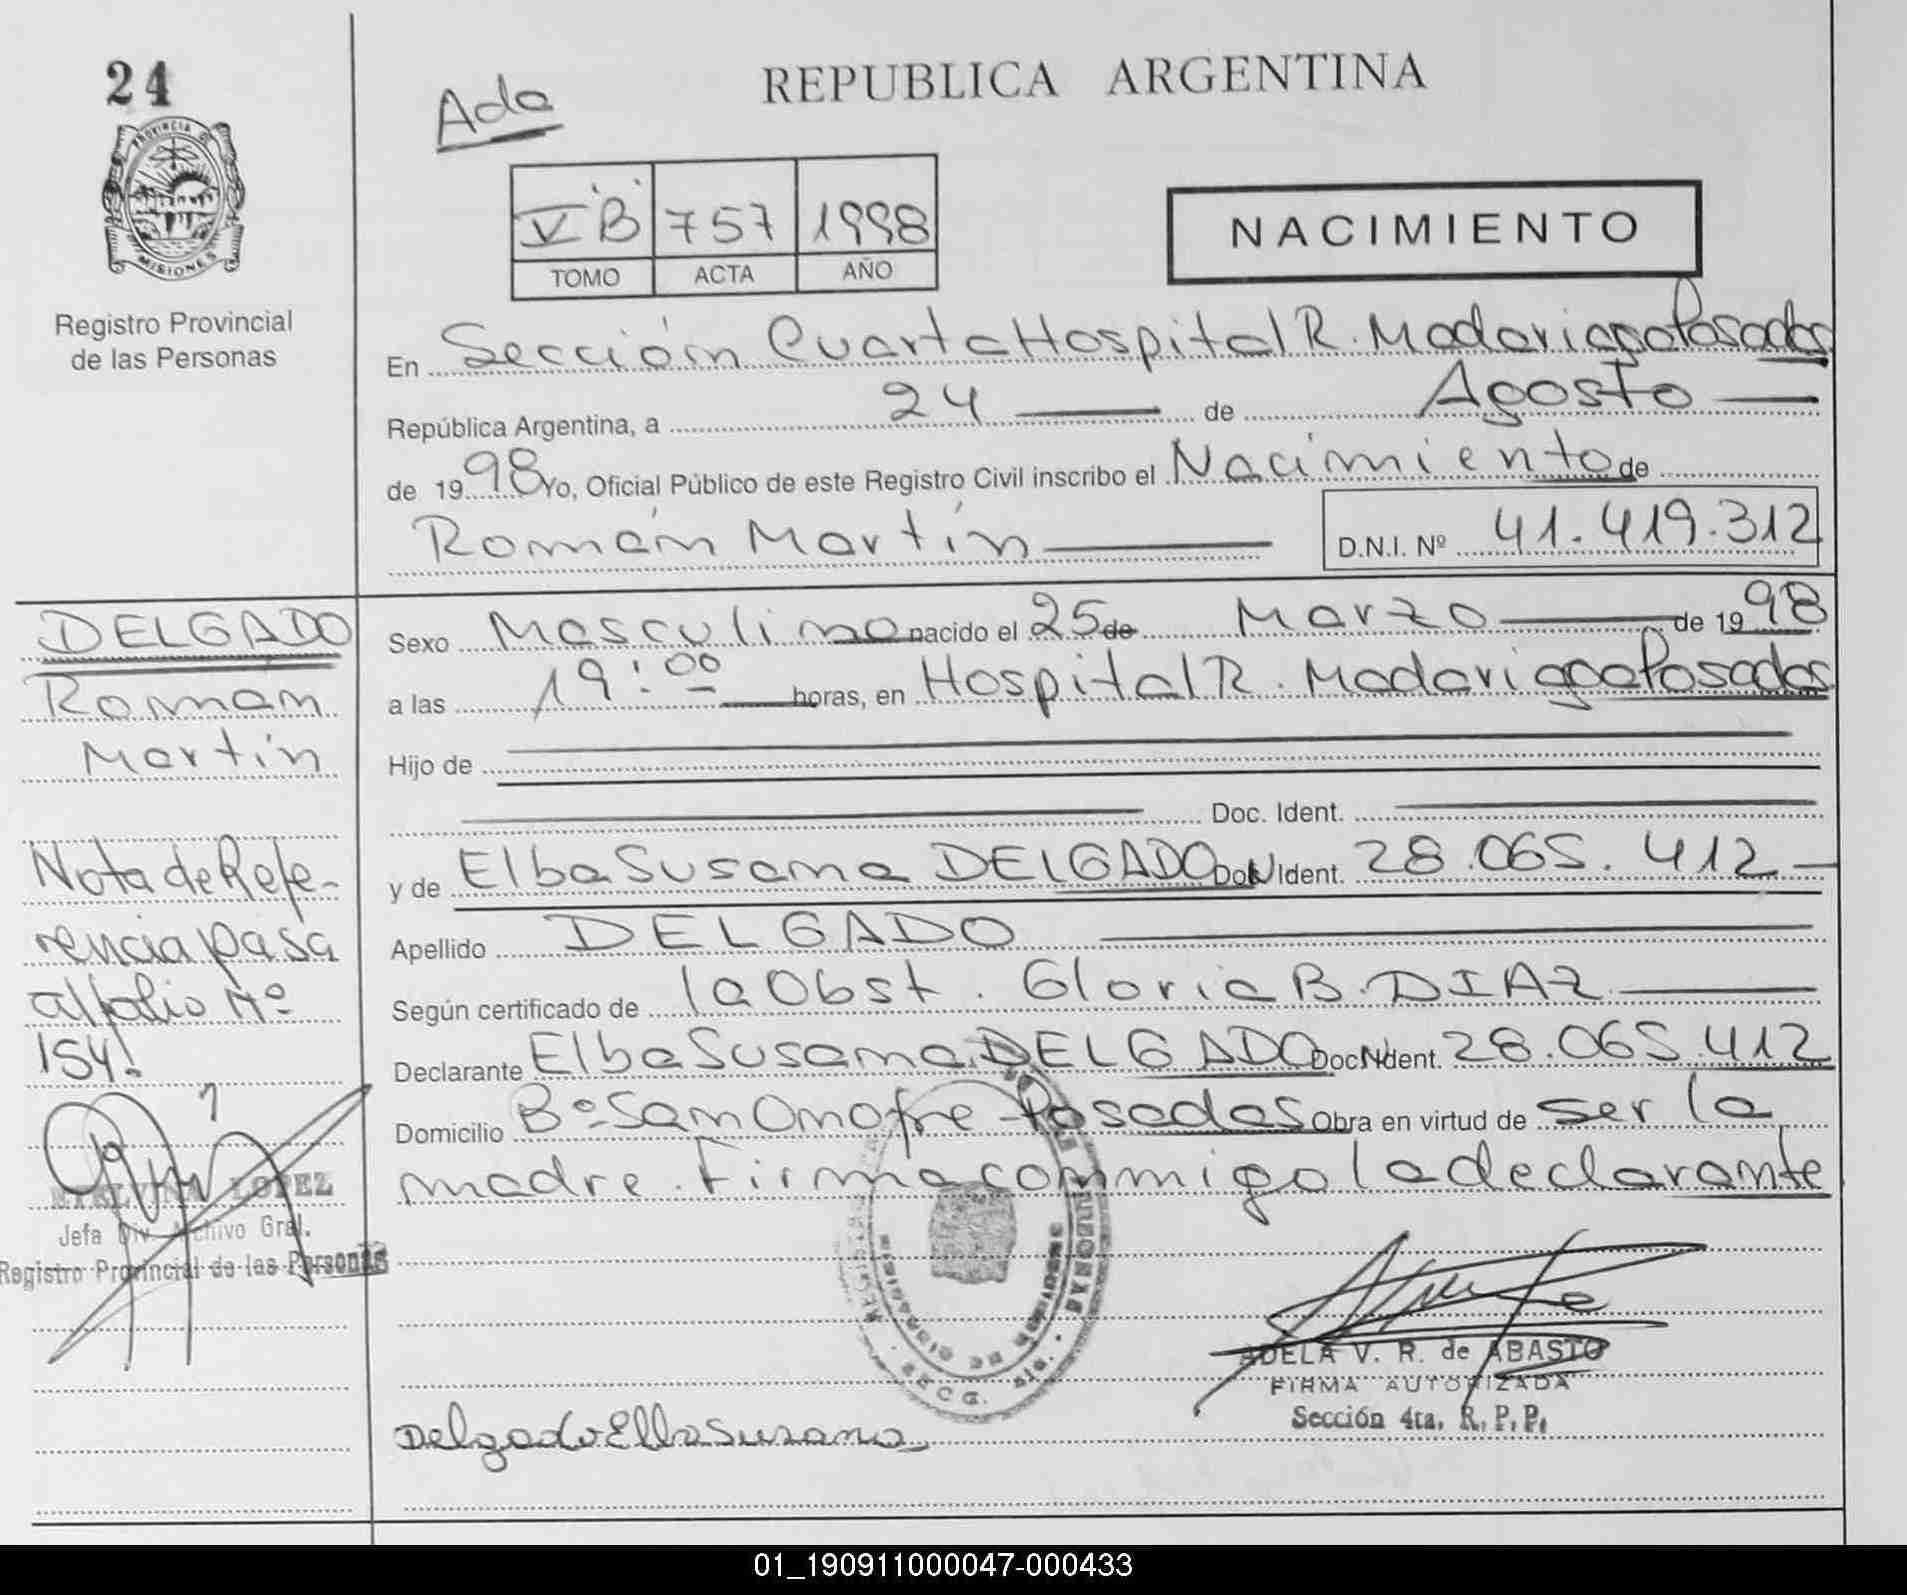 24
PROVINCIA D
MISIONES
Registro Provincial
de las Personas
Ada
REPUBLICA ARGENTINA
V B 757 1998
TOMO ACTA AÑO
NACIMIENTO
En Sección Cuarta Hospital R. Madariaga Posadas
República Argentina, a 24 de Agosto
de 1998 Yo, Oficial Público de este Registro Civil inscribo el Nacimiento de
Román Martín
D.N.I. Nº 41.419.312
DELGADO
Román
Martín
Nota de Refe-
rencia pasa
al folio Nº
154!
LOPEZ
Jefa Div. Archivo Gral.
Registro Provincial de las Personas
Sexo Masculino nacido el 25 de Marzo de 1998
a las 19:00 horas, en Hospital R. Madariaga Posadas
Hijo de
Doc. Ident.
y de Elba Susana DELGADO Doc. Ident. 28.065.412
Apellido DELGADO
Según certificado de la Obst. Gloria B. DIAZ
Declarante Elba Susana DELGADO Doc. Ident. 28.065.412
Domicilio Bº San Onofre - Posadas Obra en virtud de ser la
madre. Firma conmigo la declarante
ADELA V. R. de ABASTO
FIRMA AUTORIZADA
Sección 4ta. R. P. P.
Delgado Elba Susana
01_190911000047-000433